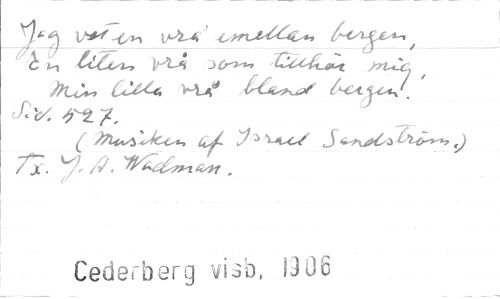 Jag vet en vrå emellan bergen,
En liten vrå som tillhör mig,
Min lilla vrå bland bergen.
Sid. 527.
(Musiken af Israel Sandström.)
Tx. J. A. Wadman.
Cederberg visb. 1906